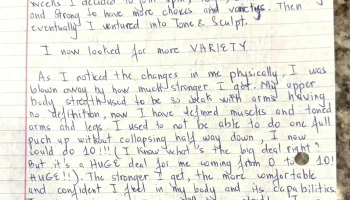 weeks I decided to join
and Strong to have more choices and varietys. Then
eventually I ventured into Tone & Sculpt.
I now looked for more VARIETY
As I noticed the changes in me physically, I was
blown away by how much stronger I got. My upper
body strength used to be so weak with arms having
no definition, now I have defined muscles and toned
arms and legs. I used to not be able to do one full
push up without collapsing half way down, I now
could do 10!!! (I know what's the big deal right?
But it's a HUGE deal for me coming from 0 to 10!
HUGE!!). The stronger I get, the more comfortable
and confident I feel in my body and its capabilities.